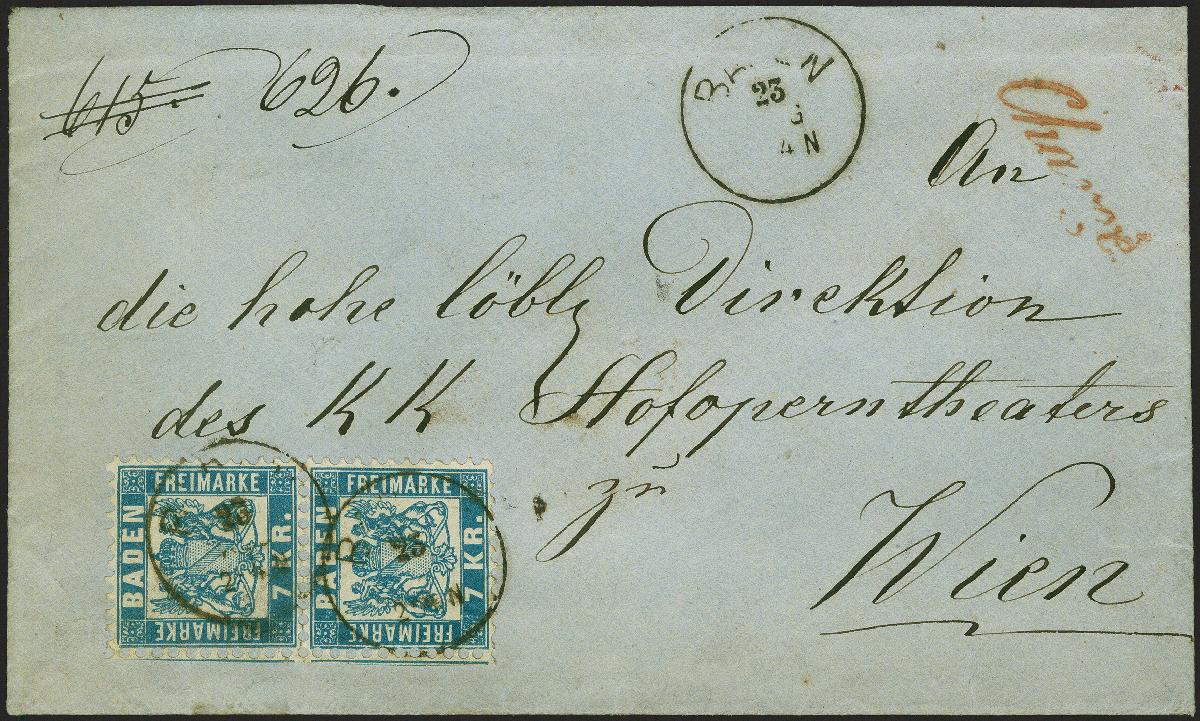 615. 626.
23
4 N
An
die hohe löbl. Direktion
des K K Hofoperntheaters
zu
Wien
FREIMARKE
BADEN
7 KR.
FREIMARKE
FREIMARKE
BADEN
7 KR.
FREIMARKE